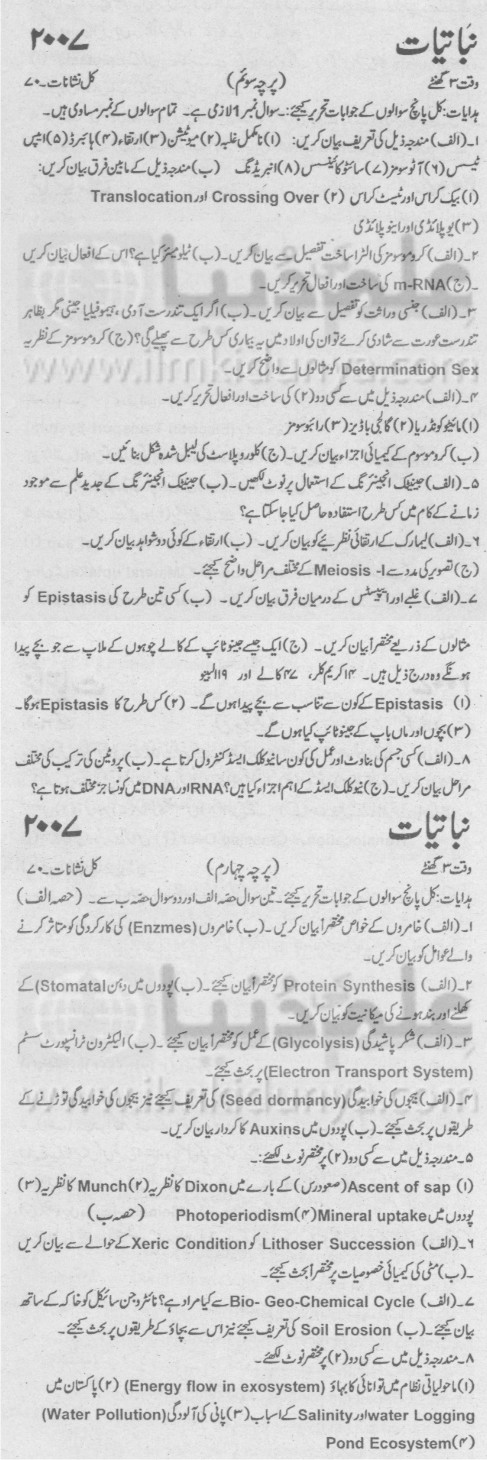 نباتیات ۲۰۰۷
وقت ۳ گھنٹے (پرچہ سوئم) کل نشانات۔۷۰
ہدایات: کل پانچ سوالوں کے جوابات تحریر کیجئے:۔ سوال نمبر 1 لازمی ہے۔ تمام سوالوں کے نمبر مساوی ہیں۔
۱۔(الف) مندرجہ ذیل کی تعریف بیان کریں: (۱) نامکمل غلبہ (۲) میوٹیشن (۳) ارتقاء (۴) ہائبرڈ (۵) ایپس
ٹیسس (۶) آٹوسومز (۷) سائٹوکائینسس (۸) انبریڈنگ (ب) مندرجہ ذیل کے مابین فرق بیان کریں:
(۱) بیک کراس اور ٹیسٹ کراس (۲) Crossing Over اور Translocation
(۳) یوپلائڈی اور اینوپلائڈی
۲۔(الف) کروموسومز کی الٹرا ساخت تفصیل سے بیان کریں۔(ب) ٹیلومیئر کیا ہے؟ اس کے افعال بیان کریں
۔(ج) m-RNA کی ساخت اور افعال تحریر کریں۔
۳۔(الف) جنسی وراثت کو تفصیل سے بیان کریں۔(ب) اگر ایک تندرست آدمی، ہیموفیلیا جینی مگر بظاہر
تندرست عورت سے شادی کرلے تو ان کی اولاد میں یہ بیماری کس طرح سے پھیلے گی؟ (ج) کروموسومز کے نظریہ
Determination Sex کو مثالوں سے واضح کریں۔
۴۔(الف) مندرجہ ذیل میں سے کسی دو (۲) کی ساخت اور افعال تحریر کریں۔
(۱) مائیٹوکونڈریا (۲) گالجی باڈیز (۳) رائبوسومز
(ب) کروموسوم کے کیمیائی اجزاء بیان کریں۔(ج) کلوروپلاسٹ کی لیبل شدہ شکل بنائیں۔
۵۔(الف) جینیٹک انجینئرنگ کے استعمال پر نوٹ لکھیں۔(ب) جینیٹک انجینئرنگ کے جدید علم سے موجود
زمانے کے کام میں کس طرح استفادہ حاصل کیا جاسکتا ہے؟
۶۔(الف) لیمارک کے ارتقائی نظریئے کو بیان کریں۔ (ب) ارتقاء کے کوئی دو شواہد بیان کریں۔
(ج) تصویر کی مدد سے Meiosis -I کے مختلف مراحل واضح کیجئے۔
۷۔(الف) غلبے اور ایپسٹسس کے درمیان فرق بیان کریں۔ (ب) کسی تین طرح کی Epistasis کو
مثالوں کے ذریعے مختصراً بیان کریں۔ (ج) ایک جیسے جینوٹائپ کے کالے چوہوں کے ملاپ سے جو بچے پیدا
ہونگے وہ درج ذیل ہیں۔ ۱۴ کریم کلر، ۴۷ کالے اور ۱۹ البیو
(۱) Epistasis کے کون سے تناسب سے بچے پیدا ہوں گے۔ (۲) کس طرح کا Epistasis ہوگا۔
(۳) بچوں اور ماں باپ کے جینوٹائپ کیا ہوں گے۔
۸۔(الف) کسی جسم کی بناوٹ اور عمل کی کون سا نیوکلک ایسڈ کنٹرول کرتا ہے۔(ب) پروٹین کی ترکیب کی مختلف
مراحل بیان کریں۔(ج) نیوکلک ایسڈ کے اہم اجزاء کیا ہیں؟ RNA اور DNA میں کونسا جز مختلف ہوتا ہے؟
نباتیات ۲۰۰۷
وقت ۳ گھنٹے (پرچہ چہارم) کل نشانات۔۷۰
ہدایات: کل پانچ سوالوں کے جوابات تحریر کیجئے۔ تین سوال حصہ الف اور دو سوال حصہ ب سے۔ (حصہ الف)
۱۔(الف) خامروں کے خواص مختصراً بیان کریں۔(ب) خامروں (Enzmes) کی کارکردگی کو متاثر کرنے
والے عوامل کو بیان کریں۔
۲۔(الف) Protein Synthesis کو مختصراً بیان کیجئے۔(ب) پودوں میں دہن (Stomatal) کے
کھلنے اور بند ہونے کی میکانیت کو بیان کریں۔
۳۔(الف) شکر پاشیدگی (Glycolysis) کے عمل کو مختصراً بیان کیجئے۔(ب) الیکٹرون ٹرانسپورٹ سسٹم
(Electron Transport System) پر بحث کیجئے۔
۴۔(الف) بیجوں کی خوابیدگی (Seed dormancy) کی تعریف کیجئے نیز بیجوں کی خوابیدگی توڑنے کے
طریقوں پر بحث کیجئے۔(ب) پودوں میں Auxins کا کردار بیان کریں۔
۵۔مندرجہ ذیل میں سے کسی دو (۲) پر مختصر نوٹ لکھئے:۔
(۱) Ascent of sap (صعود رس) کے بارے میں Dixon کا نظریہ (۲) Munch کا نظریہ (۳)
پودوں میں Mineral uptake (۴) Photoperiodism (حصہ ب)
۶۔(الف) Lithoser Succession کو Xeric Condition کے حوالے سے بیان کریں
۔(ب) مٹی کی کیمیائی خصوصیات پر مختصراً بحث کیجئے۔
۷۔(الف) Bio- Geo-Chemical Cycle سے کیا مراد ہے؟ نائٹروجن سائیکل کو خاکہ کے ساتھ
بیان کیجئے۔(ب) Soil Erosion کی تعریف کیجئے نیز اس سے بچاؤ کے طریقوں پر بحث کیجئے۔
۸۔مندرجہ ذیل میں سے کسی دو (۲) پر مختصر نوٹ لکھئے۔
(۱) ماحولیاتی نظام میں توانائی کا بہاؤ (Energy flow in exosystem) (۲) پاکستان میں
water Logging اور Salinity کے اسباب (۳) پانی کی آلودگی (Water Pollution)
(۴) Pond Ecosystem